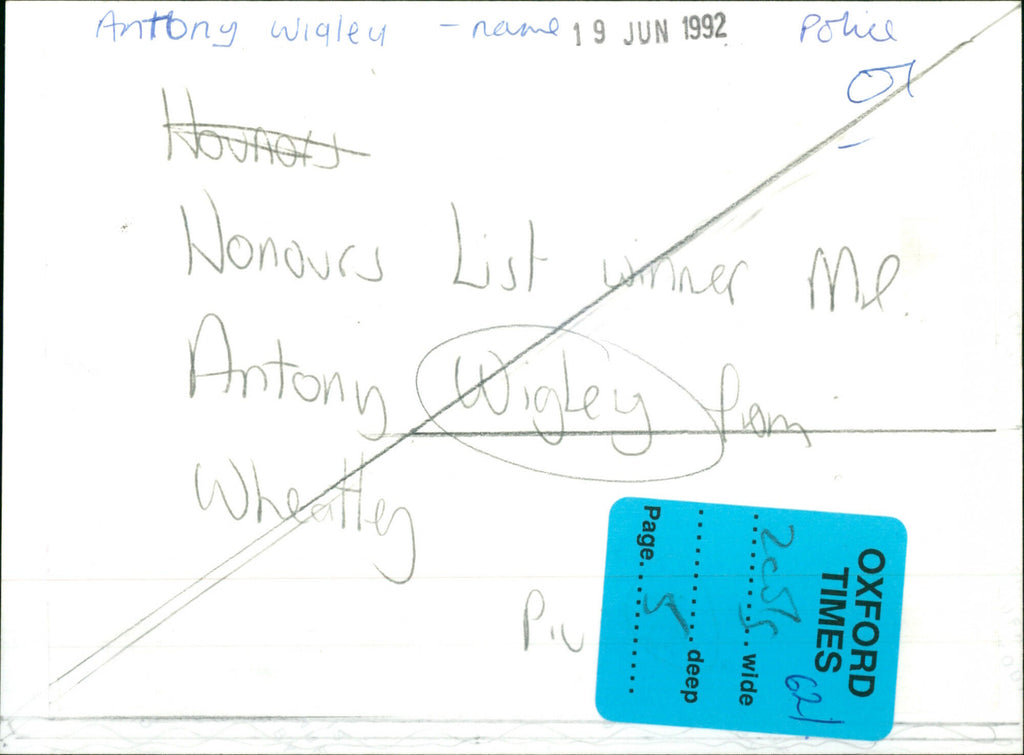 Antony Wigley - name 19 JUN 1992 Police
Hounors
Honours List winner Mr.
Antony Wigley from
Wheatley
OXFORD
TIMES
wide
deep
Page 5